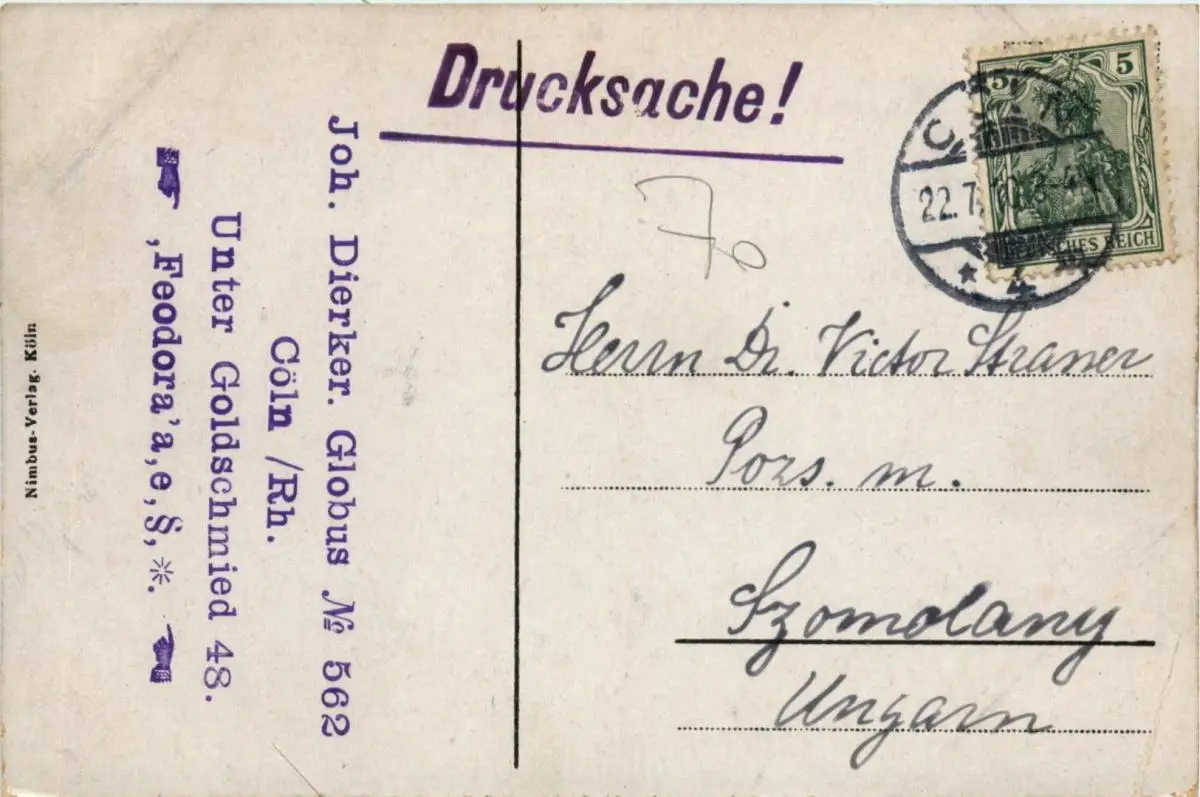 Drucksache!
5 5
DEUTSCHES REICH
C
22.7.10. 3-4N
* 4 m
Joh. Dierker. Globus № 562
Cöln /Rh.
Unter Goldschmied 48.
☛ ‚Feodora’a,e,§,*. ☚
Nimbus-Verlag. Köln
Herrn Dr. Victor Straner
Pozs. m.
Szomolany
Ungarn